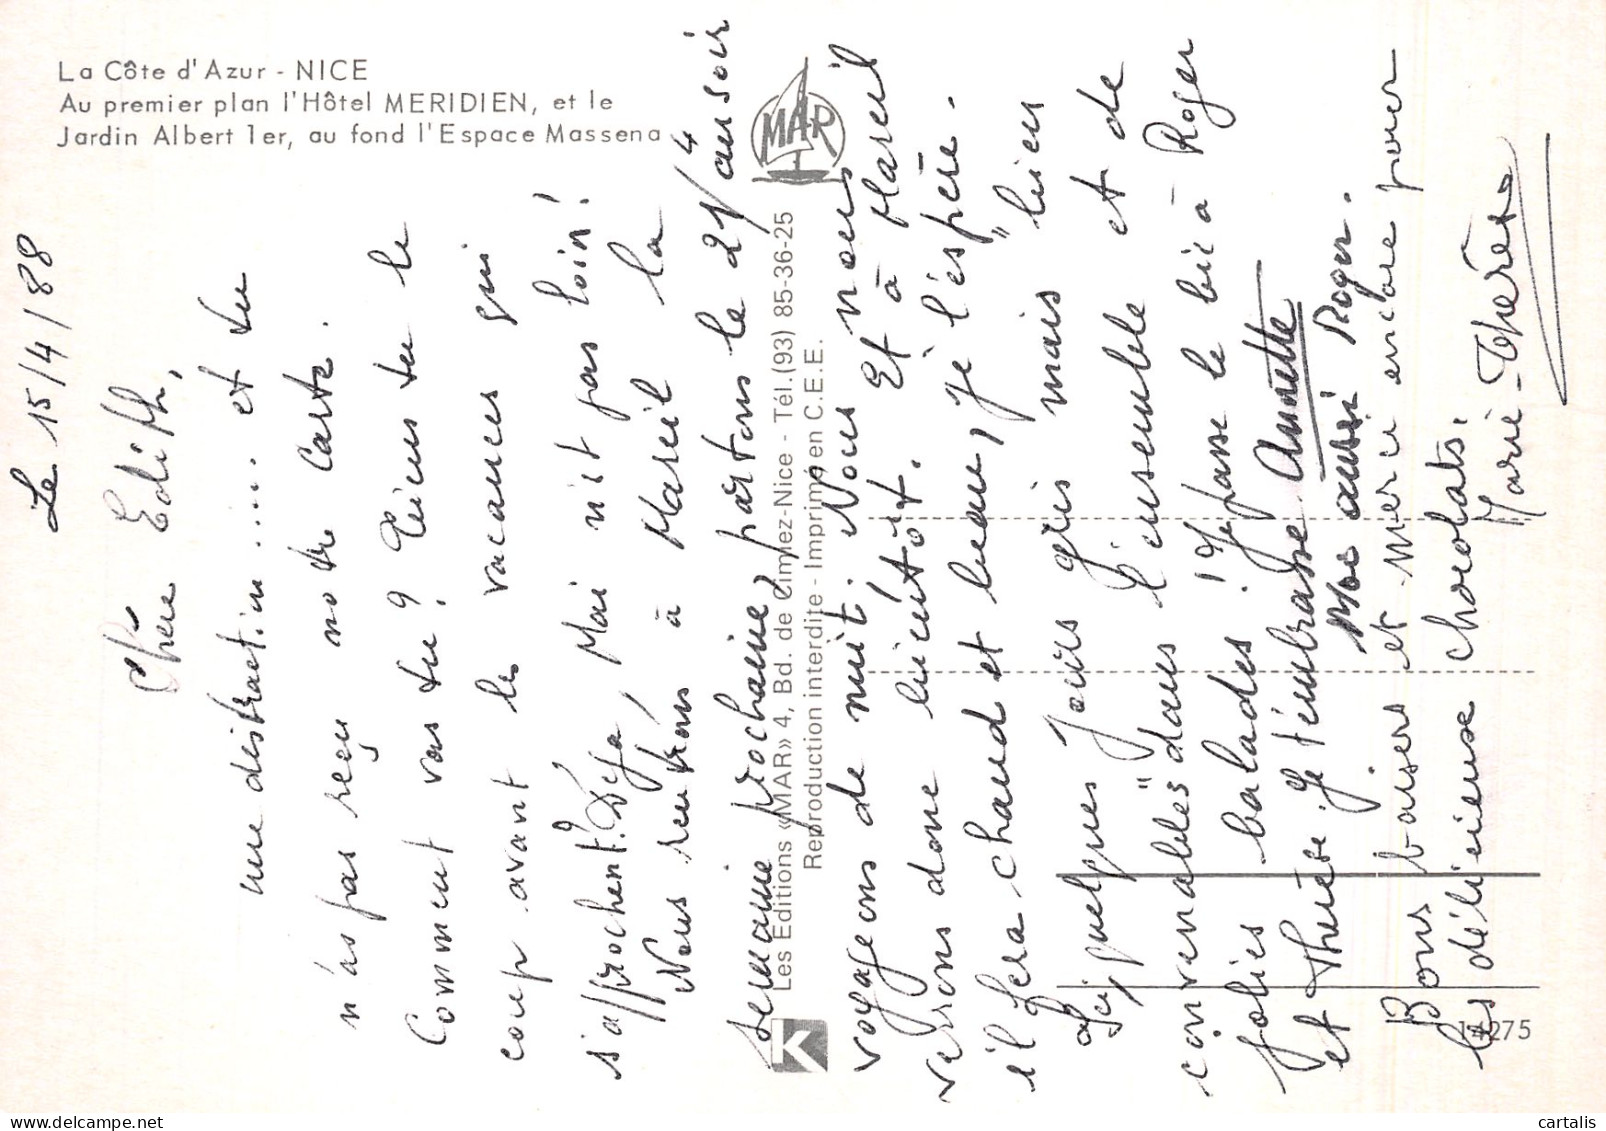 La Côte d'Azur - NICE
Au premier plan l'Hôtel MERIDIEN, et le
Jardin Albert 1er, au fond l'Espace Massena
MAR
Les Editions «MAR» 4, Bd. de Cimiez-Nice - Tél. (93) 85-36-25
Reproduction interdite - Imprimé en C.E.E.
K
14275
Le 15/4/88
Chère Edith,
une distraction ..... et tu
n'as pas reçu notre carte.
Comment vas tu ? Tiens tu le
coup avant les vacances qui
s'approchent ? Déjà, Mai n'est pas loin !
Nous rentrons à Mareil la
semaine prochaine, partons le 21/4 au soir
voyageons de nuit. Nous nous
verrons donc bientôt. Et à Mareil
il fera chaud et beau, je l'espère.
Ici, quelques jours gris mais "bien
convenables" dans l'ensemble et de
jolies balades ! Je passe le bic à Roger
et Thérèse. Je t'embrasse Annette
Moi aussi Roger.
Bons baisers et merci encore pour
les délicieux chocolats.
Marie-Thérèse
cartalis.com